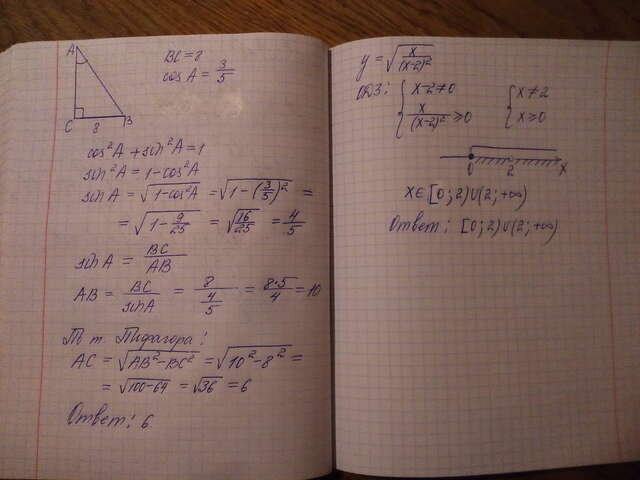 A
C
8
B
BC = 8
cos A = 3/5
cos²A + sin²A = 1
sin²A = 1 - cos²A
sin A = √(1 - cos²A) = √(1 - (3/5)²) =
= √(1 - 9/25) = √(16/25) = 4/5
sin A = BC/AB
AB = BC/sin A = 8/(4/5) = 8·5/4 = 10
По т. Пифагора:
AC = √(AB² - BC²) = √(10² - 8²) =
= √(100-64) = √36 = 6
Ответ: 6.
y = √(x/(x-2)²)
ОДЗ: { x-2≠0 { x≠2
x/(x-2)² ≥ 0 x ≥ 0
0 2 x
x ∈ [0; 2) ∪ (2; +∞)
Ответ: [0; 2) ∪ (2; +∞)